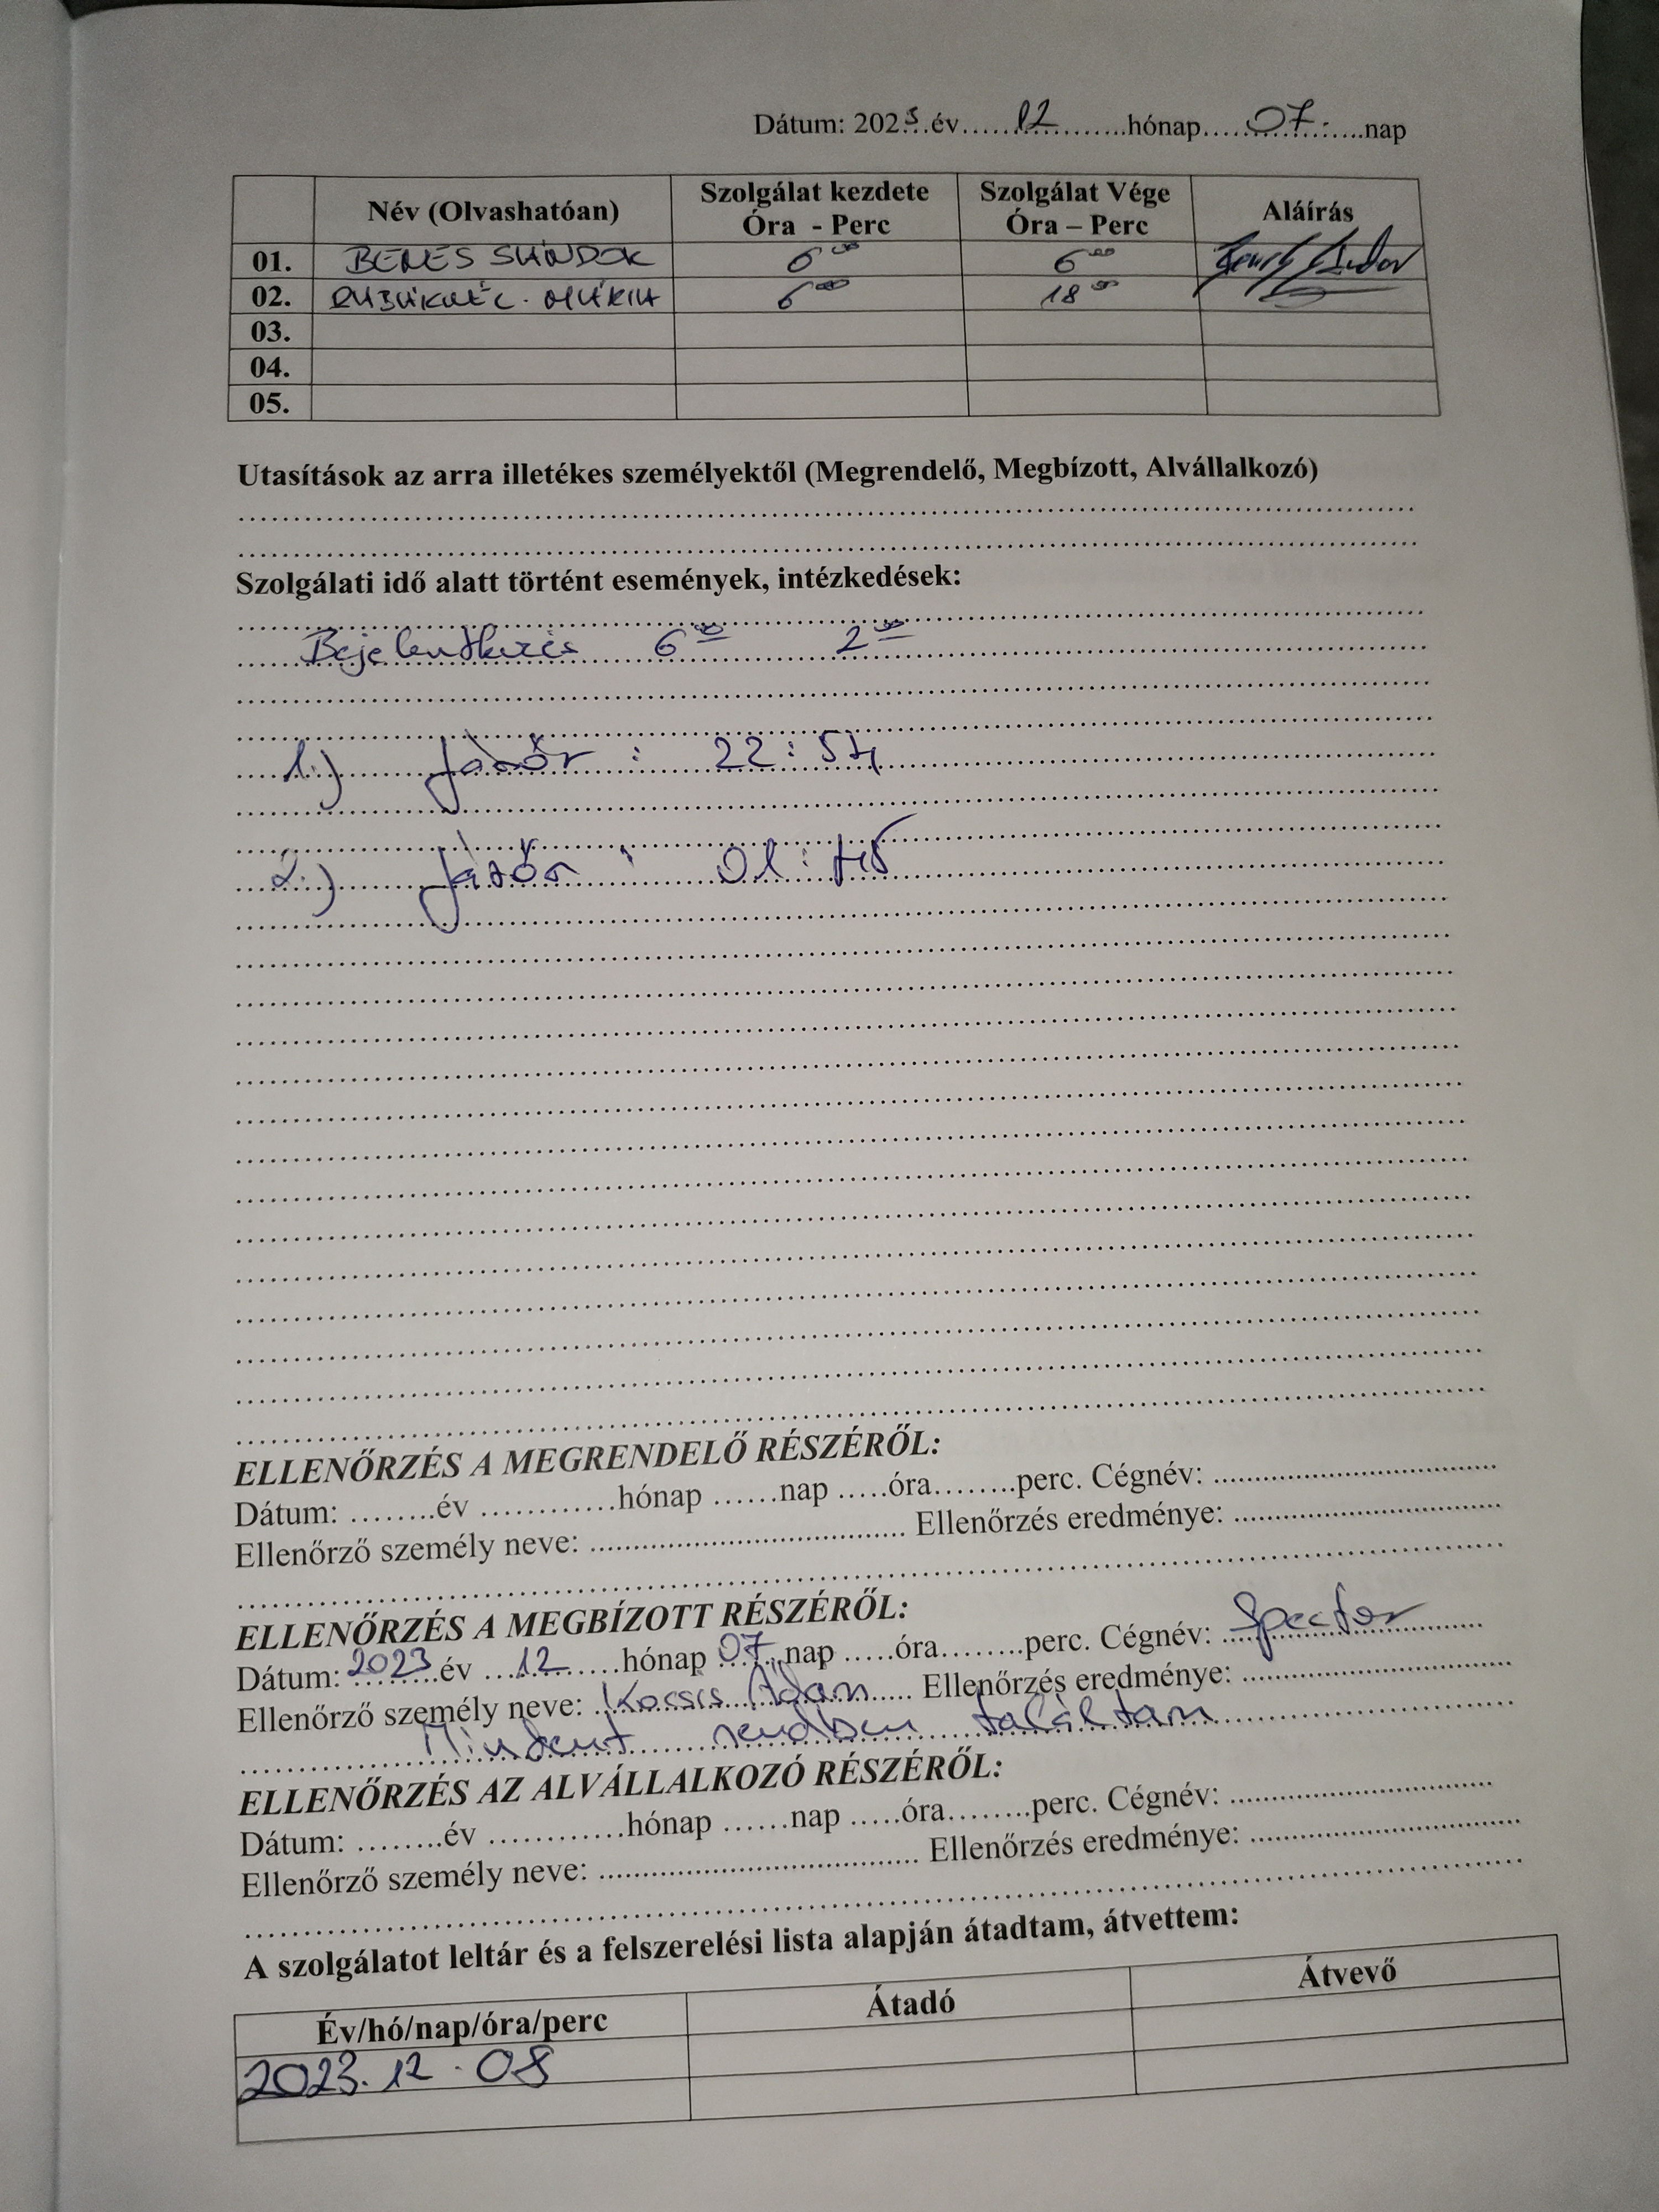 Dátum: 2023 év 12 hónap 07. nap
Név (Olvashatóan) Szolgálat kezdete Óra - Perc Szolgálat Vége Óra – Perc Aláírás
01. BENES SÁNDOR 6 00 6 00
02. MÁRIA 6 00 18 00
03.
04.
05.
Utasítások az arra illetékes személyektől (Megrendelő, Megbízott, Alvállalkozó)
Szolgálati idő alatt történt események, intézkedések:
Bejelentkezés 6 00 2 00
1.) Járőr : 22:54
2.) Járőr : 01:45
ELLENŐRZÉS A MEGRENDELŐ RÉSZÉRŐL:
Dátum: ........év ............hónap ......nap .....óra........perc. Cégnév: ........
Ellenőrző személy neve: ........ Ellenőrzés eredménye: ........
ELLENŐRZÉS A MEGBÍZOTT RÉSZÉRŐL:
Dátum: 2023 év 12 hónap 07. nap .....óra........perc. Cégnév: Spector
Ellenőrző személy neve: Kocsis Ádám Ellenőrzés eredménye: ........
Mindent rendben találtam
ELLENŐRZÉS AZ ALVÁLLALKOZÓ RÉSZÉRŐL:
Dátum: ........év ............hónap ......nap .....óra........perc. Cégnév: ........
Ellenőrző személy neve: ........ Ellenőrzés eredménye: ........
A szolgálatot leltár és a felszerelési lista alapján átadtam, átvettem:
Év/hó/nap/óra/perc Átadó Átvevő
2023. 12. 08